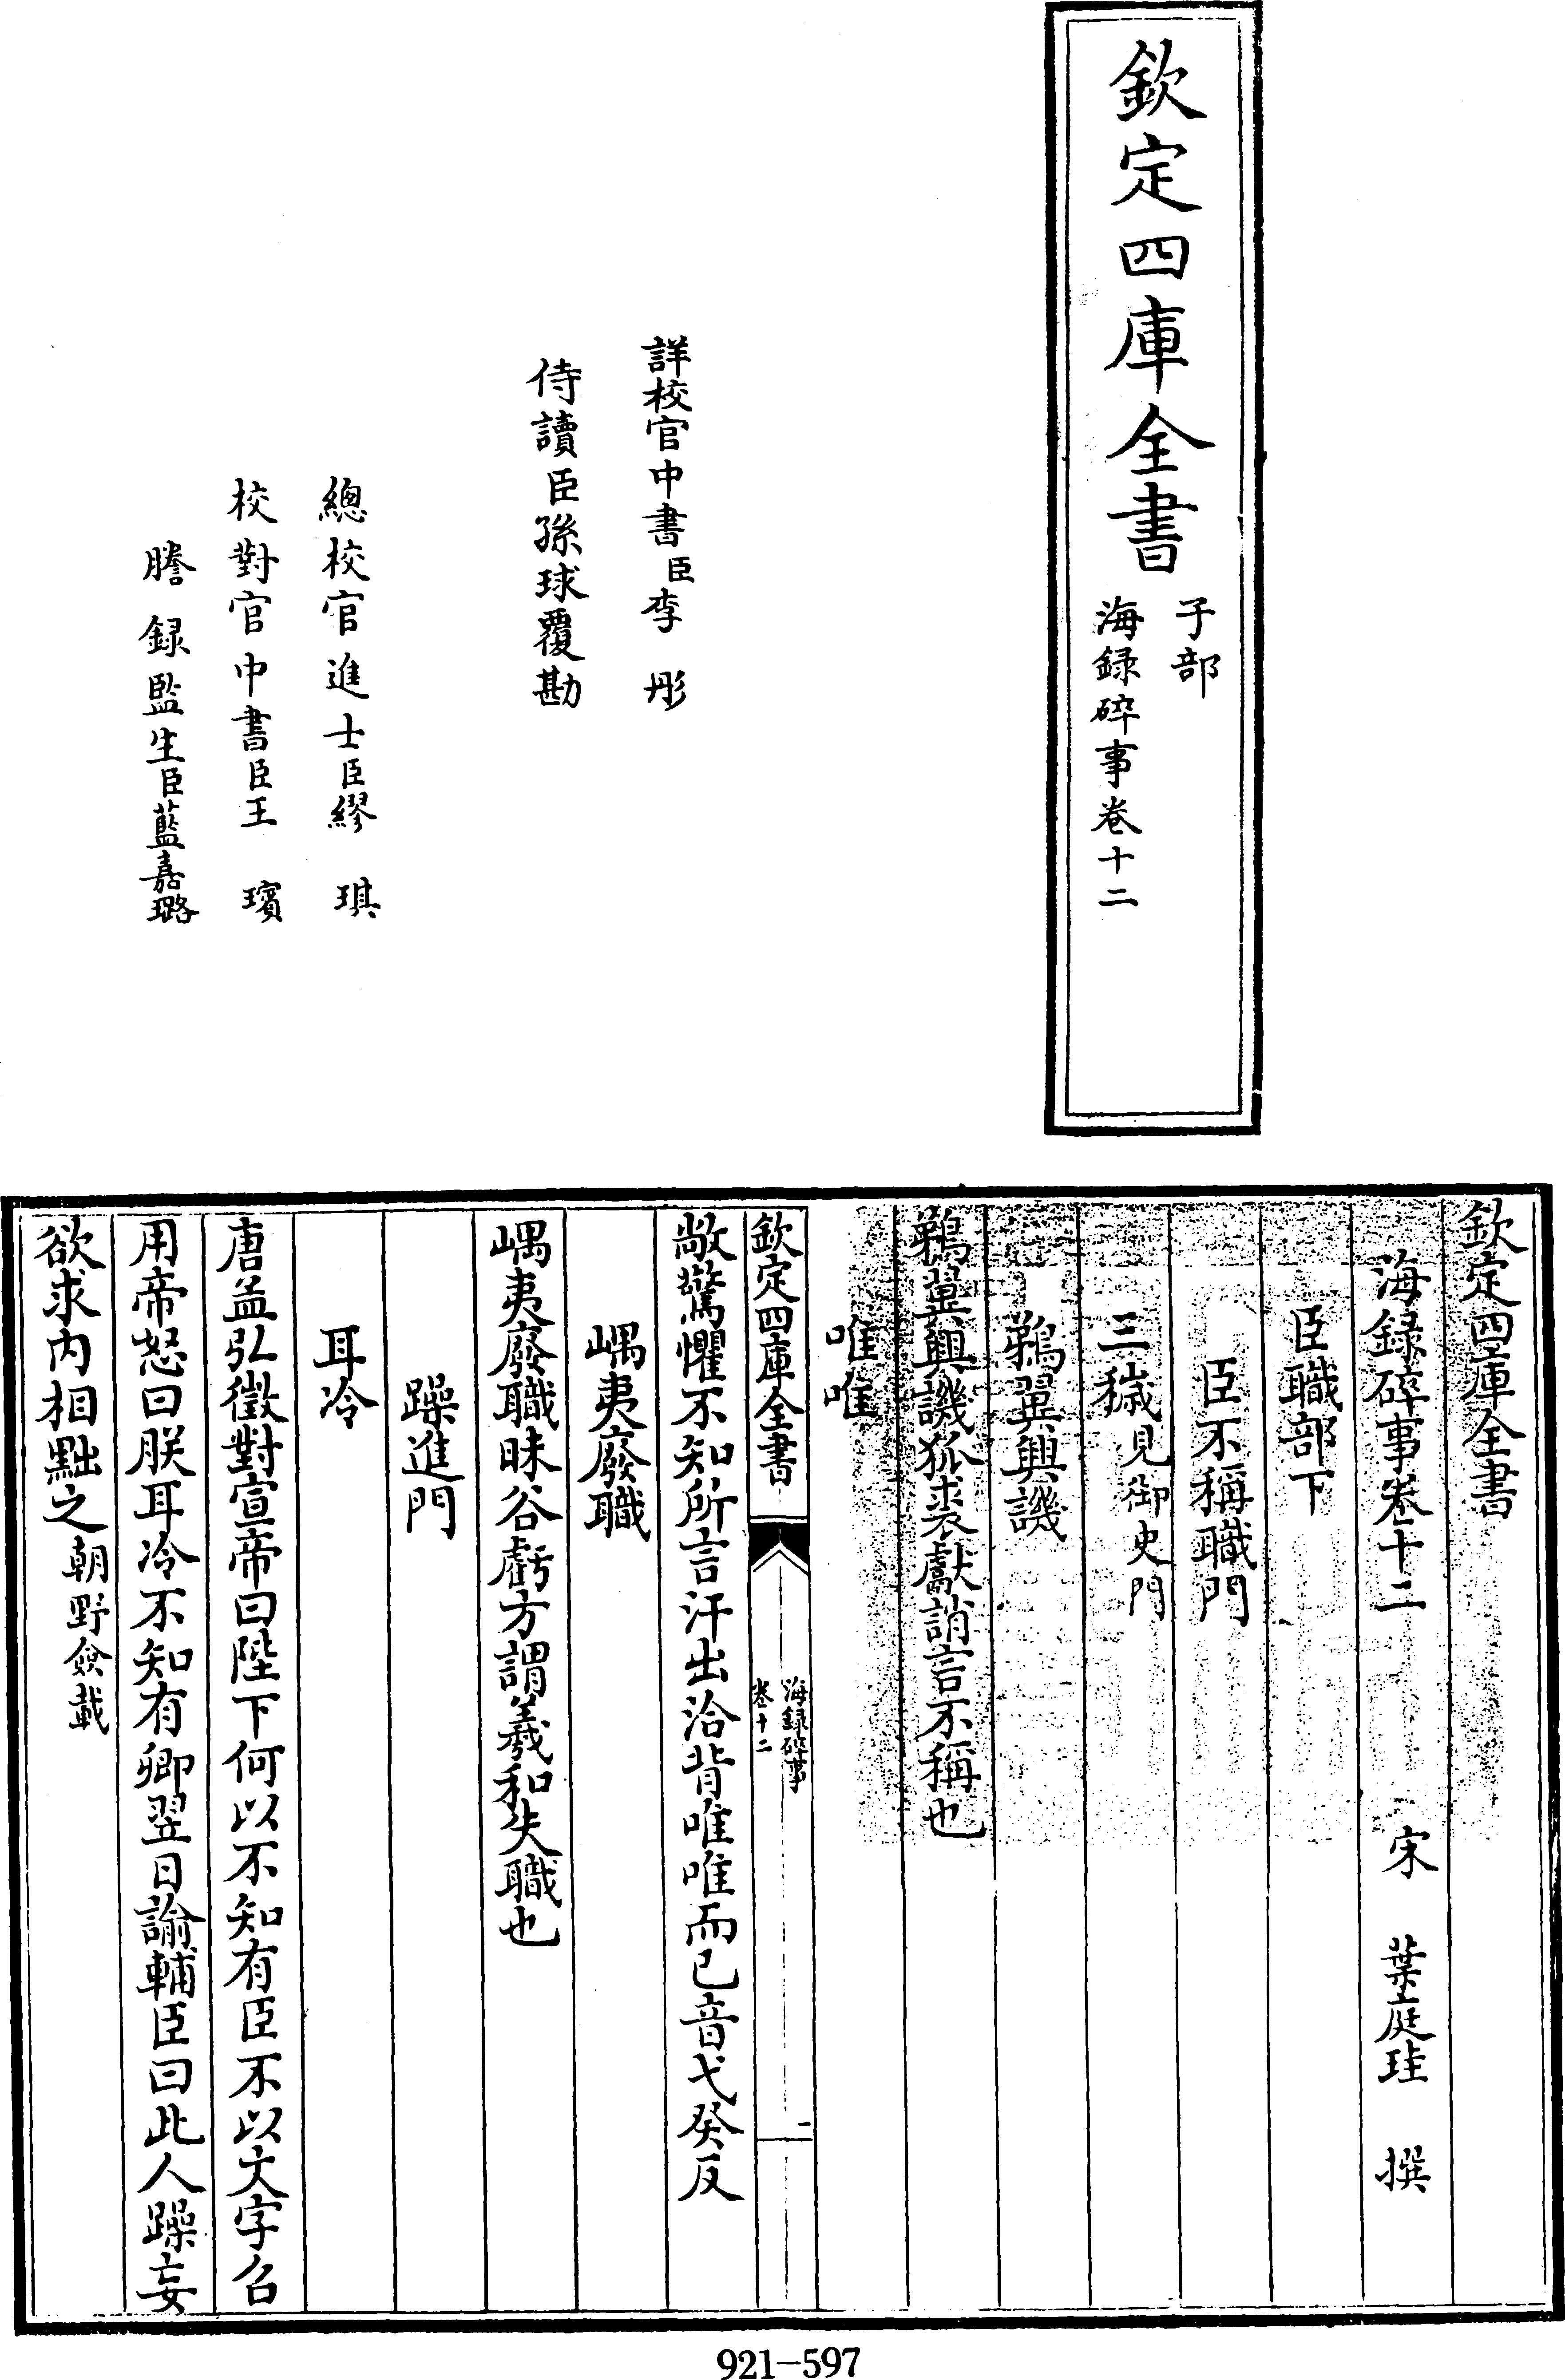 欽定四庫全書
子部
海録碎事卷十二
詳校官中書臣李彤
侍讀臣孫球覆勘
總校官進士臣繆琪
校對官中書臣王璸
謄録監生臣藍嘉璐
欽定四庫全書
海録碎事卷十二 宋 葉庭珪 撰
臣職部下
臣不稱職門
三穢見御史門
鵜翼興譏
鵜翼興譏狐裘獻誚言不稱也
唯唯
欽定四庫全書
海録碎事
卷十二
一
敞驚懼不知所言汗出洽背唯唯而已音弋癸反
嵎夷廢職
嵎夷廢職昧谷虧方謂羲和失職也
躁進門
耳冷
唐孟弘徵對宣帝曰陛下何以不知有臣不以文字召
用帝怒曰朕耳冷不知有卿翌日諭輔臣曰此人躁妄
欲求内相黜之朝野僉載
921-597